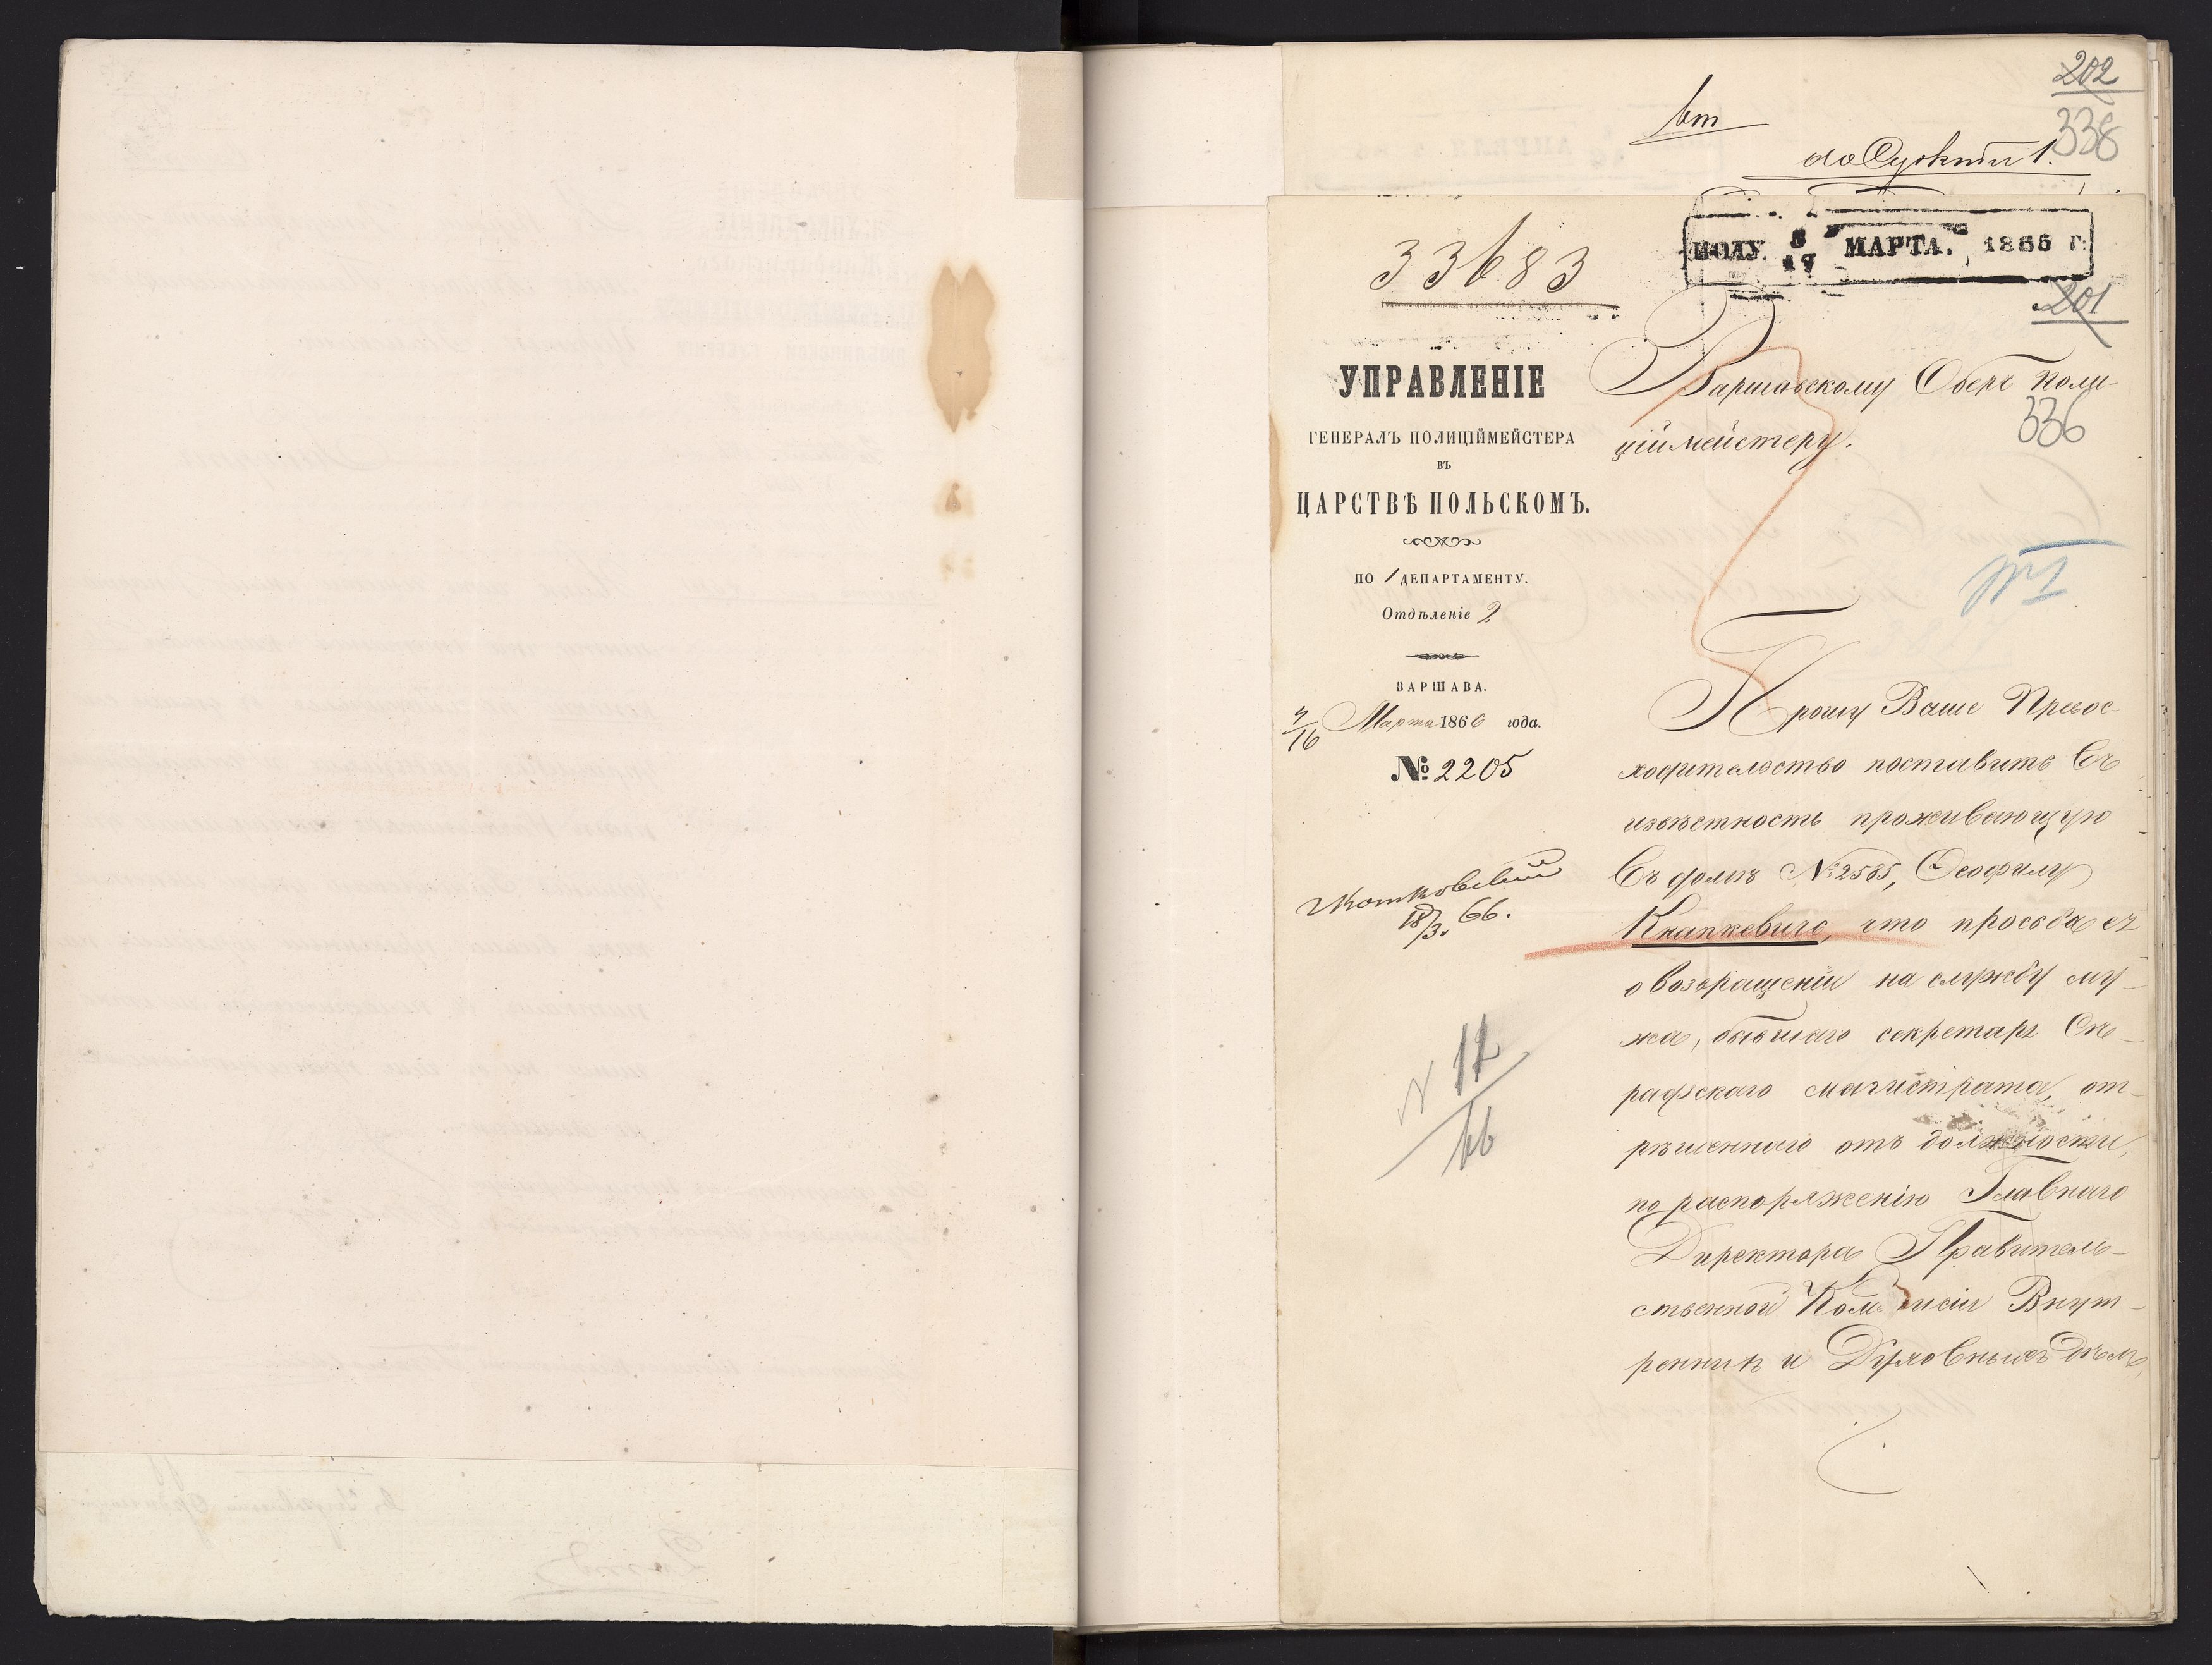 202
338
вт
201
33683
ПОЛУ. 5/17 МАРТА. 1866 Г.
УПРАВЛЕНІЕ
ГЕНЕРАЛЪ ПОЛИЦІЙМЕЙСТЕРА
ВЪ
ЦАРСТВѢ ПОЛЬСКОМЪ.
ПО 1 ДЕПАРТАМЕНТУ.
Отдѣленіе 2
ВАРШАВА.
4/16 Марта 1866 года.
№ 2205
18/3. 66.
N 12/66
Варшавскому Оберъ Поли-
ційместеру.
336
Прошу Ваше Превос-
ходительство поставить въ
извѣстность проживающую
въ домѣ № 2585, Ѳеофилу
Кнапкевичъ, что просьба ея
о возвращеніи на службу му-
жа, бывшаго секретаря Сѣ-
радзскаго магистрата, от-
рѣшеннаго отъ должности,
по распоряженію Главнаго
Директора Правитель-
ственной Коммисіи Внут-
реннихъ и Духовныхъ Дѣлъ,